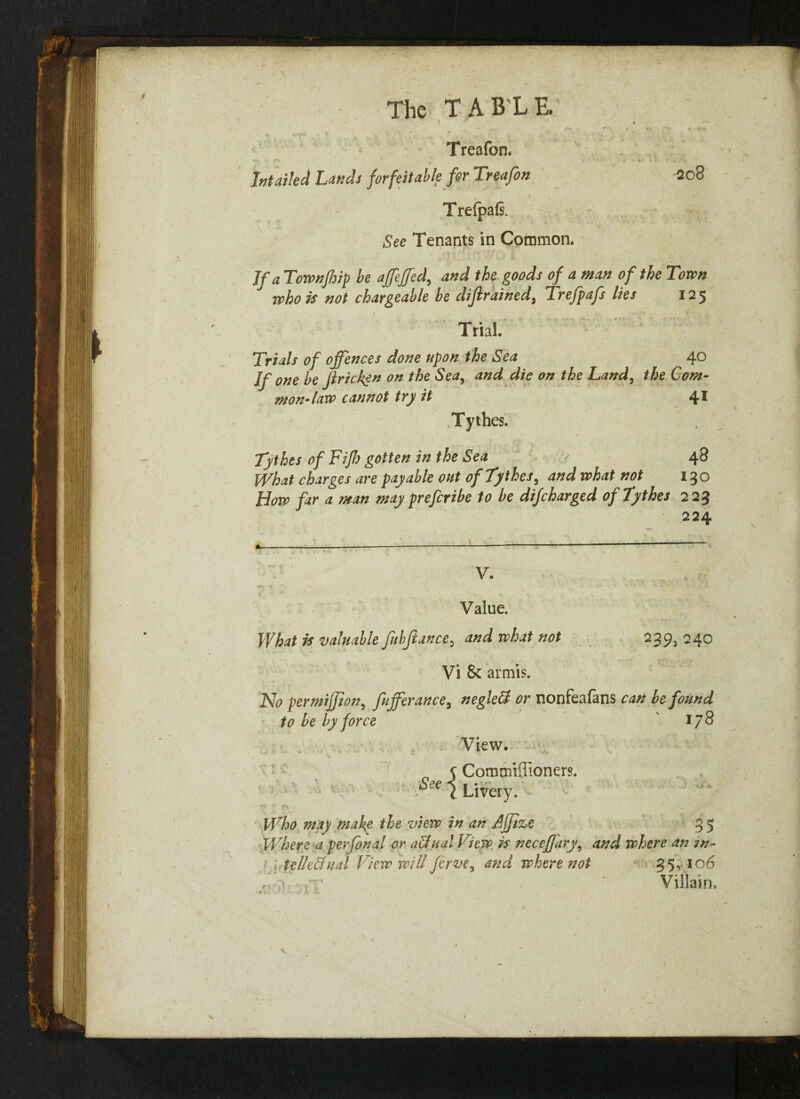 The TABLE.
Treaſon.
Intailed Lands forfeitable for Treaſon 208
Treſpaſs.
See Tenants in Common.
If a Townſhip be aſſeſſed, and the goods of a man of the Town
who is not chargeable be diſtrained, Treſpaſs lies 125
Trial.
Trials of offences done upon the Sea 40
If one be ſtricken on the Sea, and die on the Land, the Com-
mon-law cannot try it 41
Tythes.
Tythes of Fiſh gotten in the Sea 48
What charges are payable out of Tythes, and what not 130
How far a man may preſcribe to be diſcharged of Tythes 223
224
V.
Value.
What is valuable ſubſtance, and what not 239, 240
Vi & armis.
No permiſſion, ſufferance, neglect or nonfeaſans can be found
to be by force 178
View.
See { Commiſſioners.
Livery.
Who may make the view in an Aſſize 35
Where a perſonal or actual View is neceſſary, and where an in-
tellectual View will ſerve, and where not 35, 106
Villain.